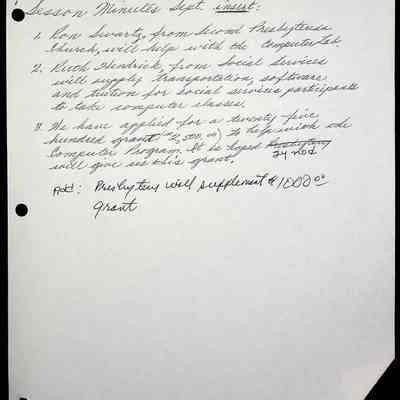 Sesson Minutes Sept. insert:
1. Ron Swartz, from Second Presbyterian
Church, will help with the computer Lab.
2. Ruth Hendrick, from Social Services
will supply transportation, software
and tuition for social services participants
to take computer classes.
3. We have applied for a twenty five
hundred grant (2,500.00) to help with the
Computer Program. It is hoped Presbytery
Synod
will give us this grant.
Add: Presbytery will supplement $1000.00
grant